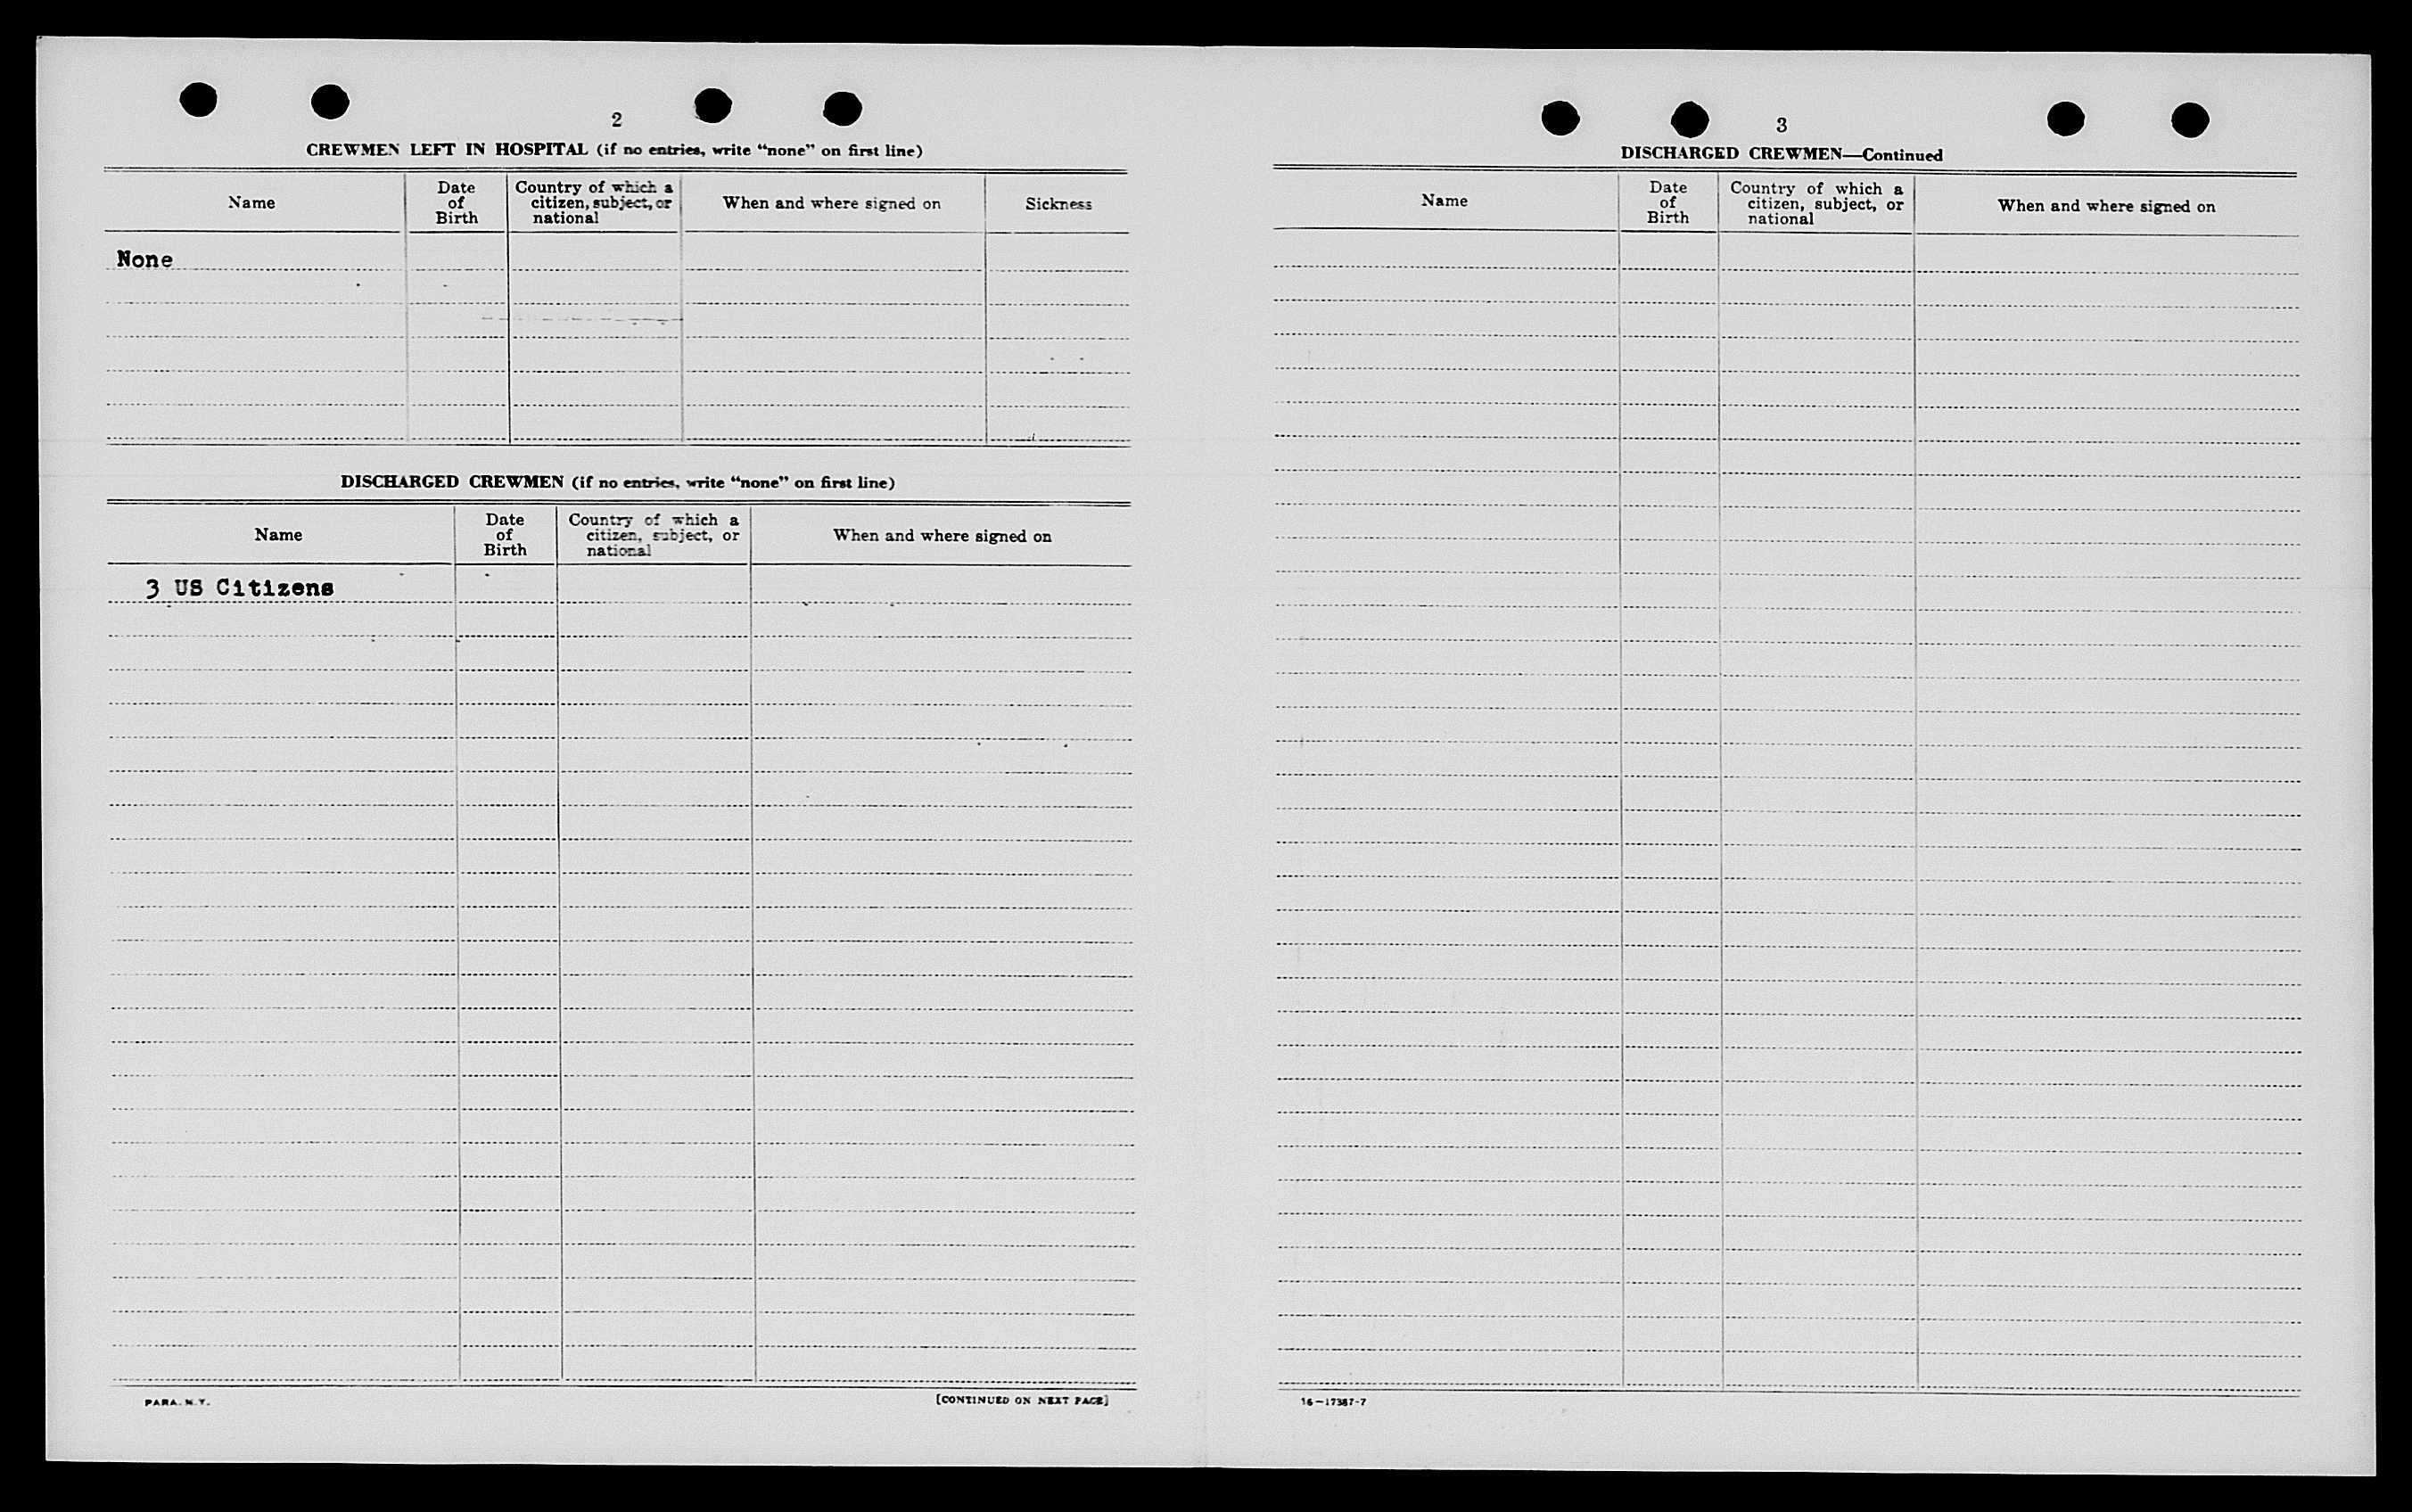 2
CREWMEN LEFT IN HOSPITAL (if no entries, write “none” on first line)
Name
Date
of
Birth
Country of which a
citizen, subject, or
national
When and where signed on
Sickness
None
DISCHARGED CREWMEN (if no entries, write “none” on first line)
Name
Date
of
Birth
Country of which a
citizen, subject, or
national
When and where signed on
3 US Citizens
PARA. N.Y.
[CONTINUED ON NEXT PAGE]
3
DISCHARGED CREWMEN—Continued
Name
Date
of
Birth
Country of which a
citizen, subject, or
national
When and where signed on
16—17387-7